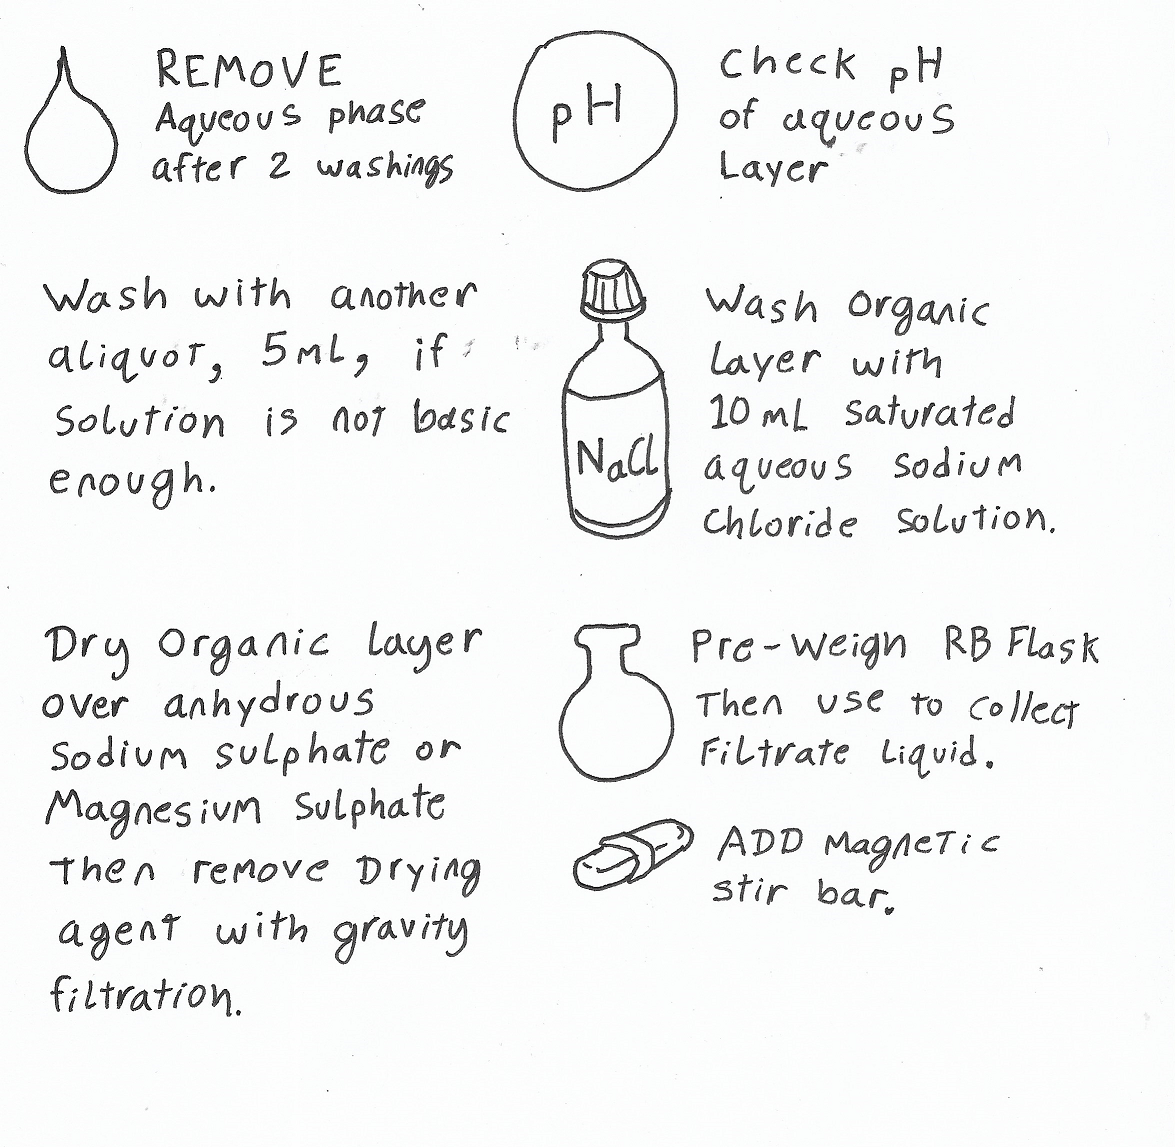 REMOVE
Aqueous phase
after 2 washings
pH
Check pH
of aqueous
Layer
Wash with another
aliquot, 5mL, if
Solution is not basic
enough.
NaCl
Wash Organic
Layer with
10 mL saturated
aqueous sodium
Chloride solution.
Dry Organic Layer
over anhydrous
Sodium sulphate or
Magnesium Sulphate
Then remove Drying
agent with gravity
filtration.
Pre-Weigh RB Flask
Then use to collect
Filtrate Liquid.
ADD Magnetic
stir bar.